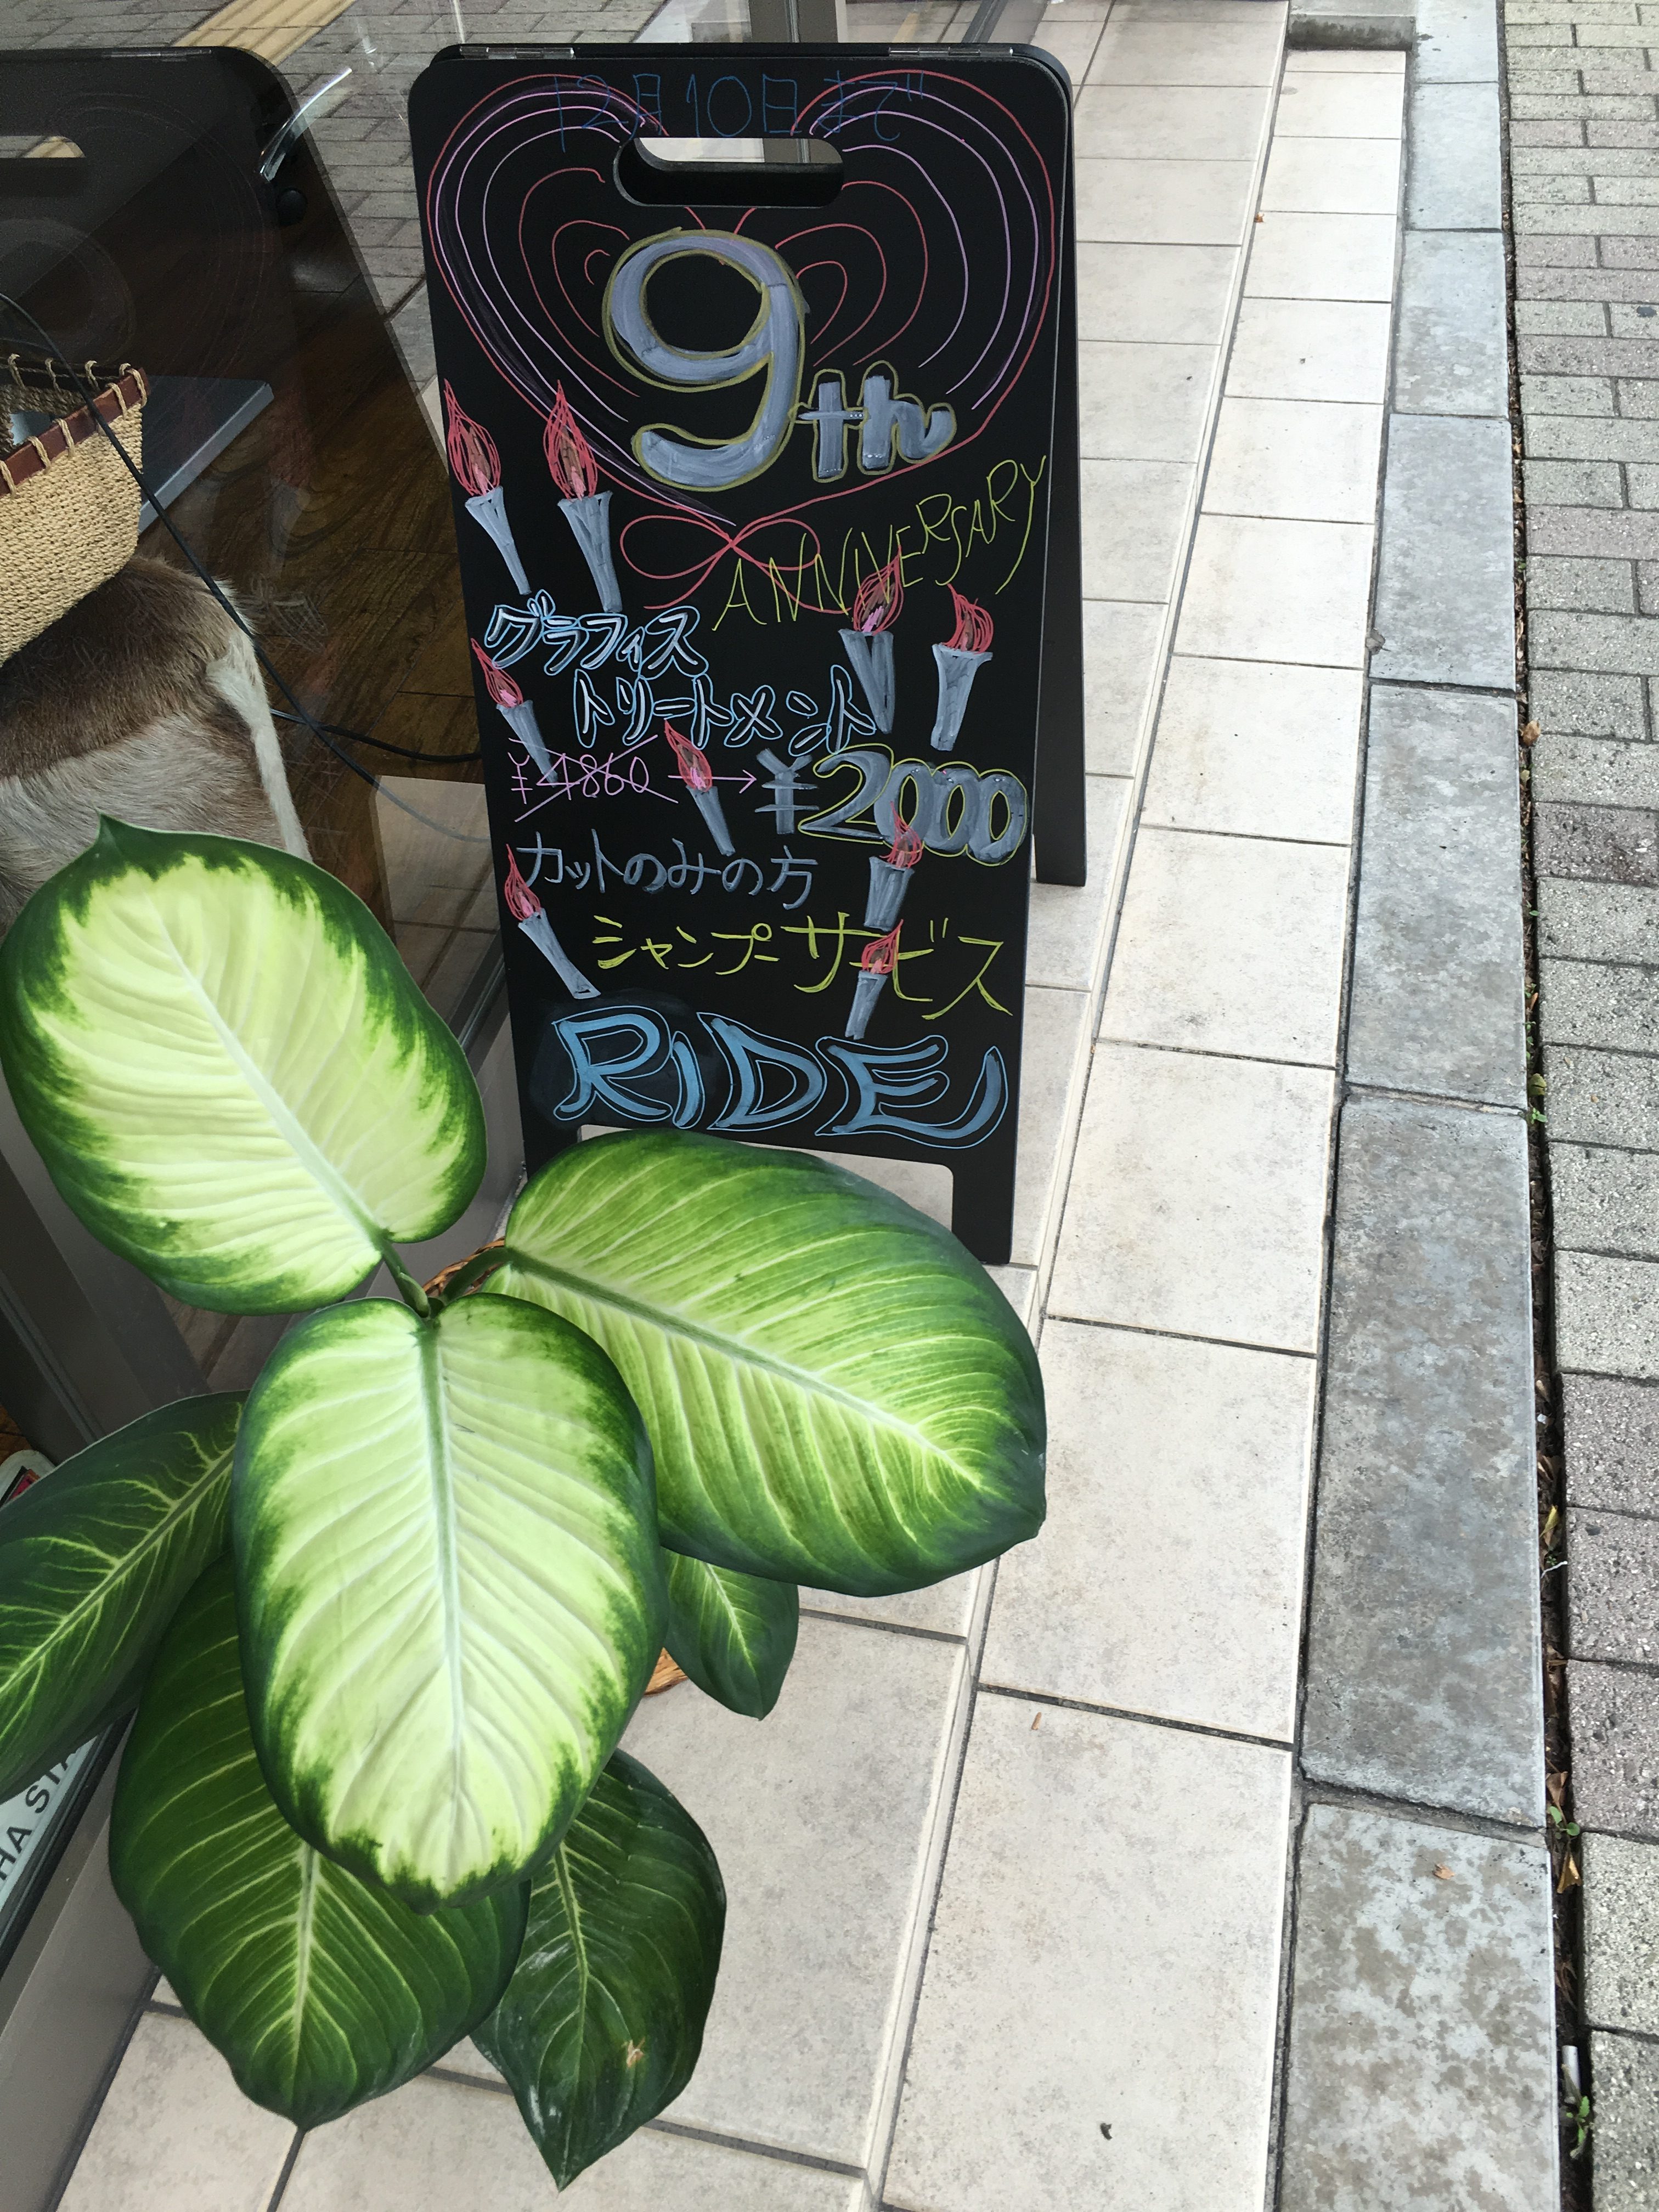 12月10日まで
9th
ANNIVERSARY
グラフィス
トリートメント
¥4860 → ¥2000
カットのみの方
シャンプーサービス
RIDE
HA STA